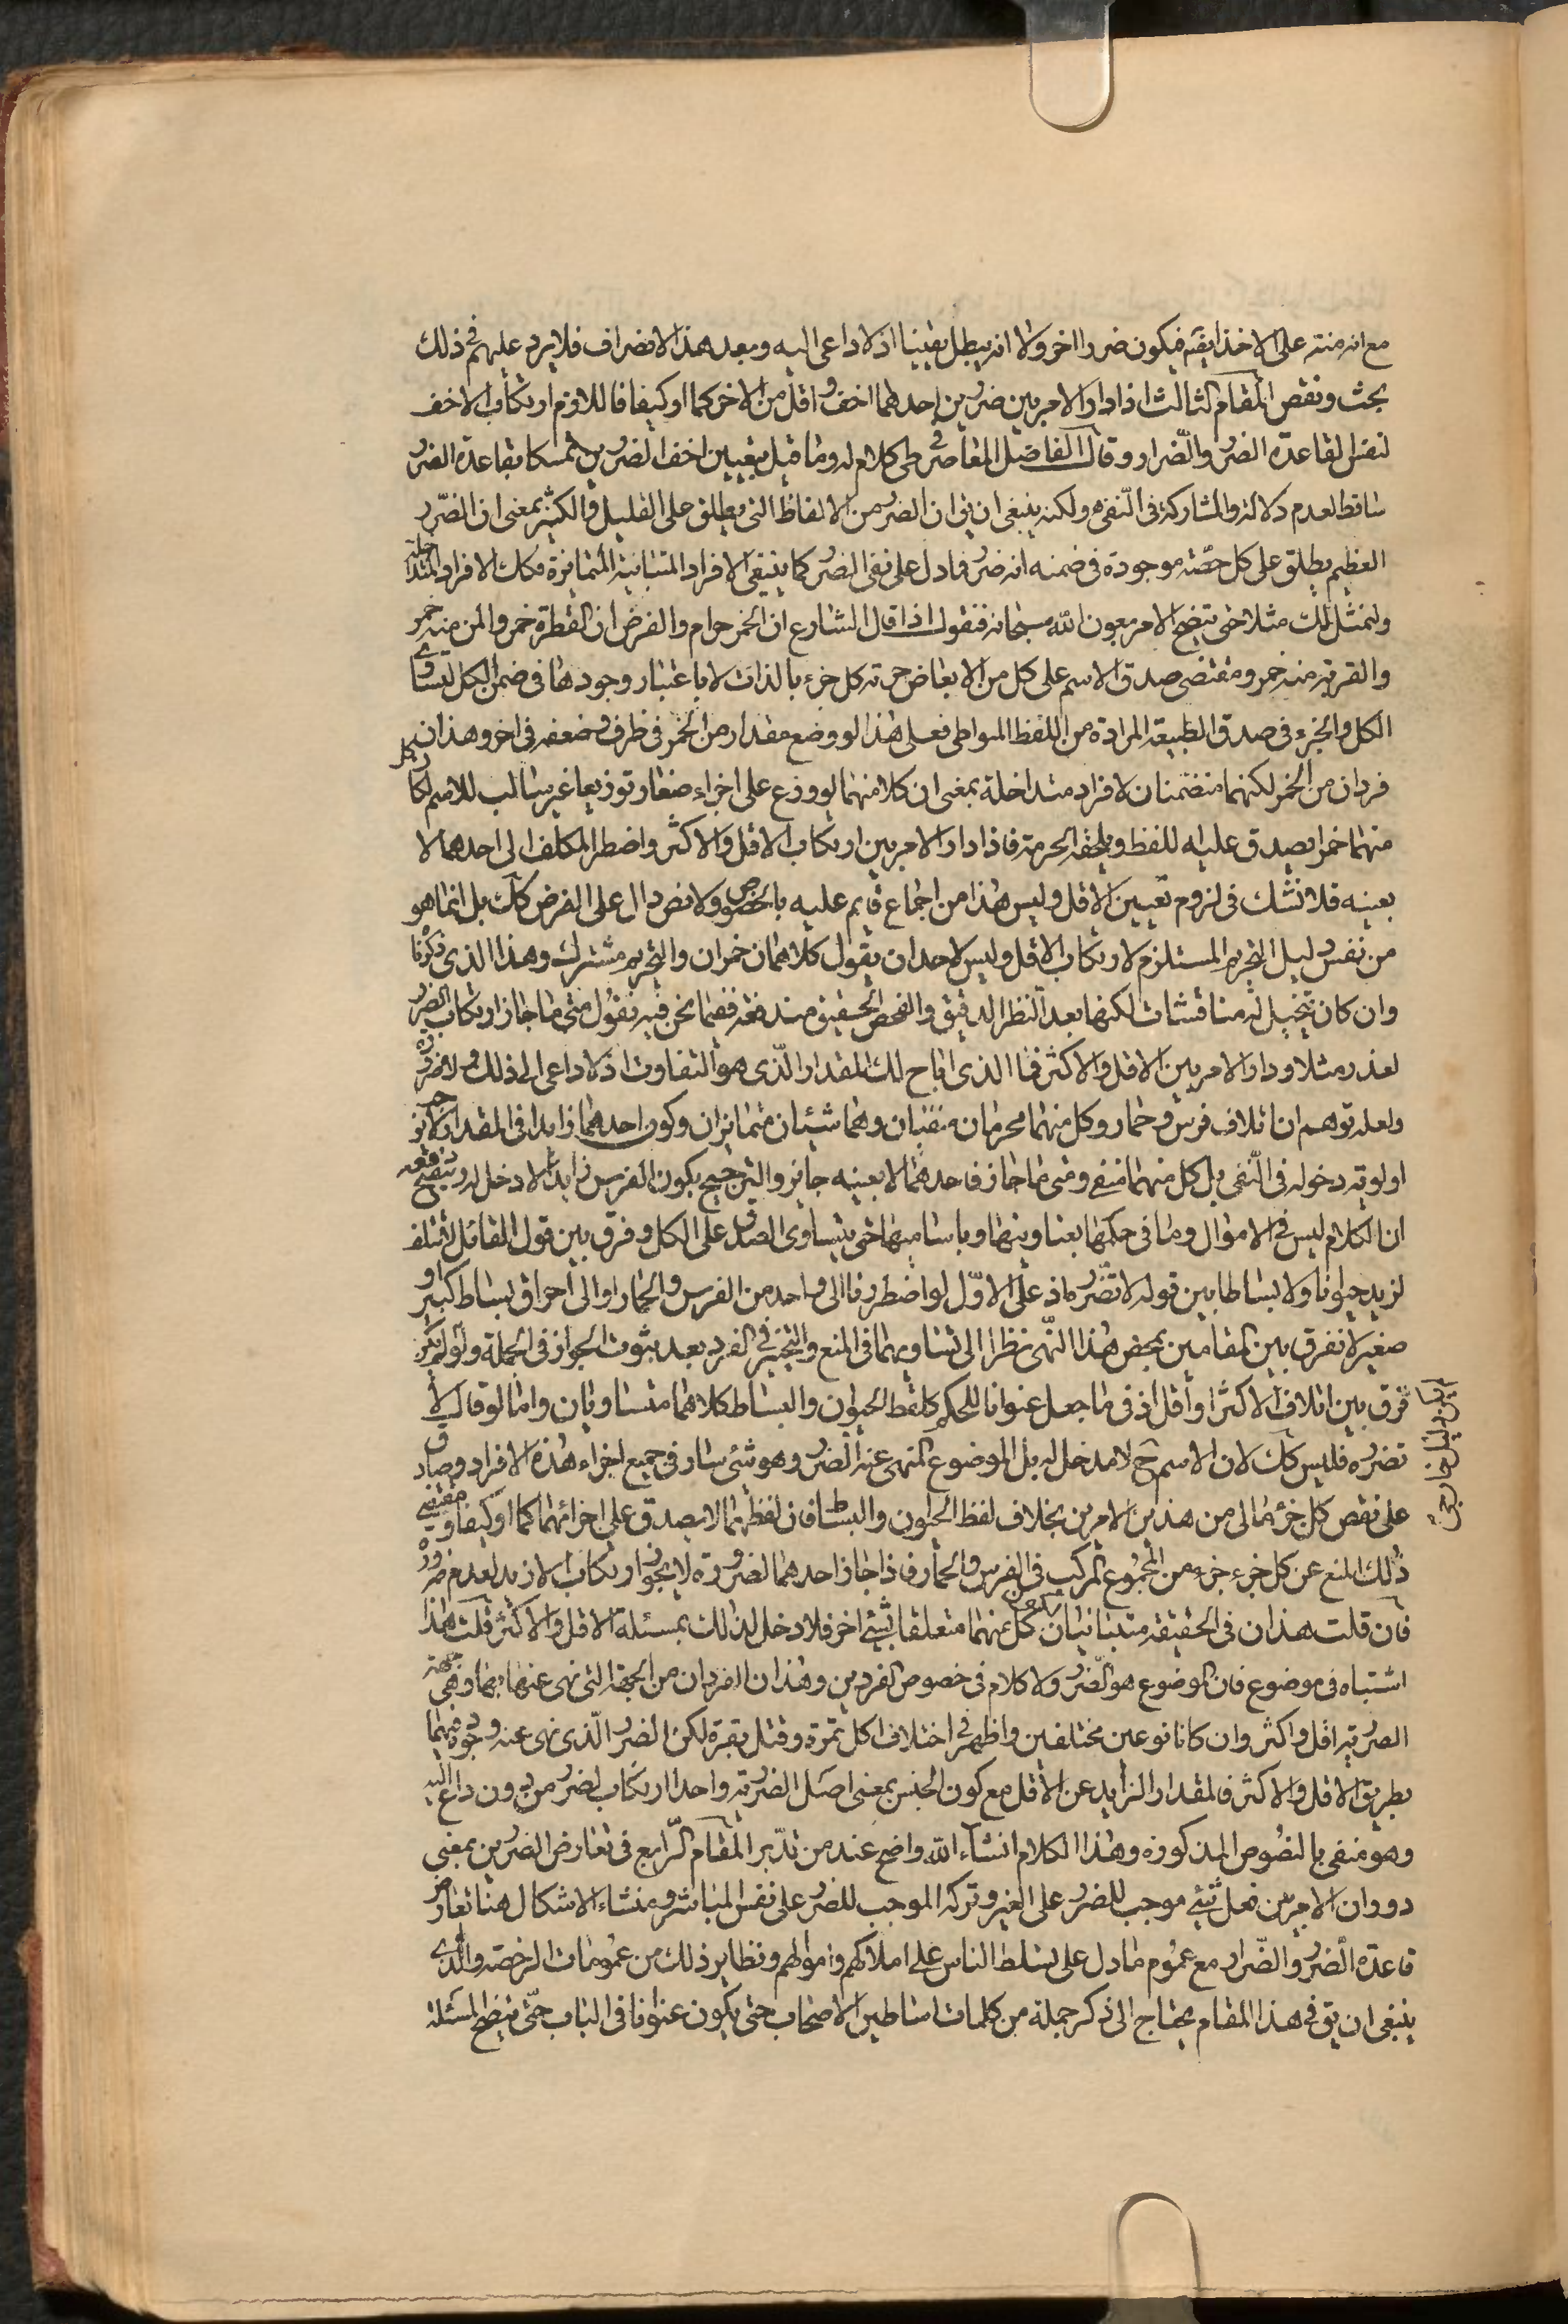 مع انه منته على الاخذ بقيته فيكون ضررا اخر والا انه يبطل يقينا اذ لا داعى اليه وبعد هذا الانصراف فلا يرد عليهم فى ذلك
بحث ونقص المقام الثالث اذا دار الامر بين ضررين احدهما اخف واقل من الاخر كما او كيفا فاللازم ارتكاب الاخف
لنفس القاعدة الضرر والضرار وقال الفاضل المعاصر فى طى كلام له وما قيل بتعيين اخف الضررين تمسكا بقاعدة الضرر
ساقط لعدم دلالته والمشاركة فى النفى ولكنه ينبغى ان يق ان الضرر من الالفاظ التى يطلق على القليل والكثير بمعنى ان الضرر
العظيم يطلق على كل حصّة موجودة فى ضمنه انه ضرر فما دل على نفى الضرر كما ينفى الافراد المتباينة المتمايزة فكك الافراد المتداخلة
ولنمثل لك مثلا حتى يتضح الامر بعون الله سبحانه فنقول اذا قال الشارع ان الخمر حرام والفرض ان القطرة خمر والمن منه خمر
والقربة منه خمر ومقتضى صدق الاسم على كل من الابعاض حرمة كل جزء بالذات لا باعتبار وجودها فى ضمن الكل لتساوى
الكل والجزء فى صدق الطبيعة المرادة من اللفظ المواطى فعلى هذا لو وضع مقدار من الخمر فى ظرف وضعفه فى اخر وهذان
فردان من الخمر لكنهما متضمنان لافراد متداخلة بمعنى ان كلا منهما لو وزع على اجزاء صغار توزيعا غير سالب للاسم لكان كل
منهما خمرا يصدق عليه اللفظ ويلحقه الحرمة فاذا دار الامر بين ارتكاب الاقل والاكثر واضطر المكلف الى احدهما لا
بعينه فلا نشك فى لزوم تعيين الاقل وليس هذا من اجماع قايم عليه بالخصوص ولا نص دال على الفرض كك بل انما هو
من نفس دليل التحريم المستلزم لارتكاب الاقل وليس لاحد ان يقول كلاهما ن خمران والتحريم مشترك وهذا الذى ذكرنا
وان كان يتخيل له مناقشات لكنها بعد النظر الدقيق والفحص الحقيق مندفعة ففيما نحن فيه نقول متى ما جاز ارتكاب الضرر
لعذر مثلا ودار الامر بين الاقل والاكثر فما الذى اباح لك المقدار الذى هو التفاوت اذ لا داعى الى ذلك ولا ضرورة
ولعله توهم ان اتلاف فرس وحمار وكل منهما محرمان منفيان وهما شيئان متمايزان وكون احدهما زايدا فى المقدار لا يوجب
اولوية دخوله فى النفى بل كل منهما منفى ومتى ما جاز فاحدهما لا بعينه جايز والترجيح بكون الفرس زايدا لا دخل له ويتضح دفعه
ان الكلام ليس فى الاموال وما فى حكمها بعناوينها وباساميها حتى يتساوى الصدق على الكل وفرق بين قول القائل لا تتلف
لزيد حيوانا ولا بساطا بين قوله لا تضره اذ على الاول لو اضطررنا الى واحد من الفرس والحمار او الى احراق بساط كبير او
صغير لا نفرق بين المقامين بمحض هذا النهى نظرا الى تساويهما فى المنع والتخيير فى الفرد بعد ثبوت الجواز فى الجملة ولو لم يكن
فرق بين اتلاف الاكثر او اقل اذ فى ما جعل عنوانا للحكم كلفظ الحيوان والبساط كلاهما متساويان واما لو قال لا
تضره فليس كك لان الاسم ح لا مدخل له بل الموضوع المنهى عنه الضرر وهو شئ سار فى جميع اجزاء هذه الافراد وصادق
على نقص كل جزء مالى من هذين الامرين بخلاف لفظ الحيوان والبساط فان لفظهما لا يصدق على اجزائهما كما او كيفا ومقتضى
ذلك المنع عن كل جزء جزء من المجموع المركب فى الفرس والحمار فاذا جاز احدهما لضرورة لا يجوز ارتكاب الازيد لعدم ضرورة
فان قلت هذان فى الحقيقة متباينان لكون كل منهما متعلقا بشئ اخر فلا دخل لذلك بمسئلة الاقل والاكثر قلت هذا
اشتباه فى موضوع فان الموضوع هو الضرر ولا كلام فى خصوص الفردين وهذان الفردان من الجهة التى نهى عنهما بها وهى جهة
الضررية اقل واكثر وان كانا نوعين مختلفين واظهر فى اختلاف اكل تمرة وقتل بقرة لكن الضرر الذى نهى عنه وجوده فيهما
بطريق الاقل والاكثر فالمقدار الزايد عن الاقل مع كون الجنس بمعنى اصل الضررية واحدا ارتكاب لضرر من دون داع اليه
وهو منفى بالنصوص المذكورة وهذا الكلام انشاء الله واضح عند من تدبر المقام الرابع فى تعارض الضررين بمعنى
دوران الامر بين فعل شئ موجب للضرر على الغير وتركه الموجب للضرر على نفس المباشر ومنشاء الاشكال هنا تعارض
قاعدة الضرر والضرار مع عموم ما دل على تسلط الناس على املاكهم واموالهم ونظاير ذلك من عمومات الرخصة والذى
ينبغى ان يق فى هذا المقام يحتاج الى ذكر جملة من كلمات اساطين الاصحاب حتى يكون عنوانا فى الباب حتى يتضح المسئلة
دليل خارجى